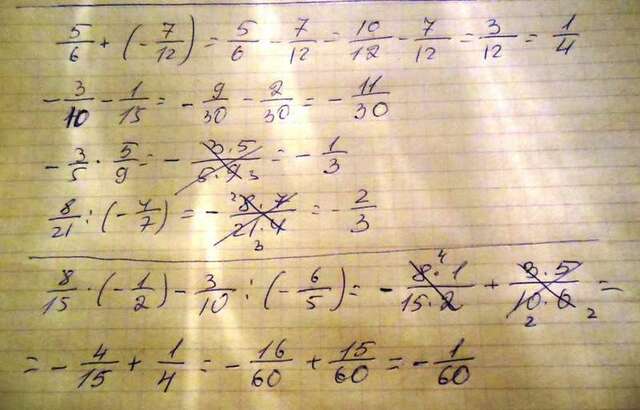 5/6 + (-7/12) = 5/6 - 7/12 = 10/12 - 7/12 = 3/12 = 1/4
-3/10 - 1/15 = -9/30 - 2/30 = -11/30
-3/5 · 5/9 = -3·5/5·9 3 = -1/3
8/21 : (-4/7) = -2 8·7/21·4 3 = -2/3
8/15 · (-1/2) - 3/10 : (-6/5) = -8 4·1/15·2 + 3·5/10·6 2 2 =
= -4/15 + 1/4 = -16/60 + 15/60 = -1/60